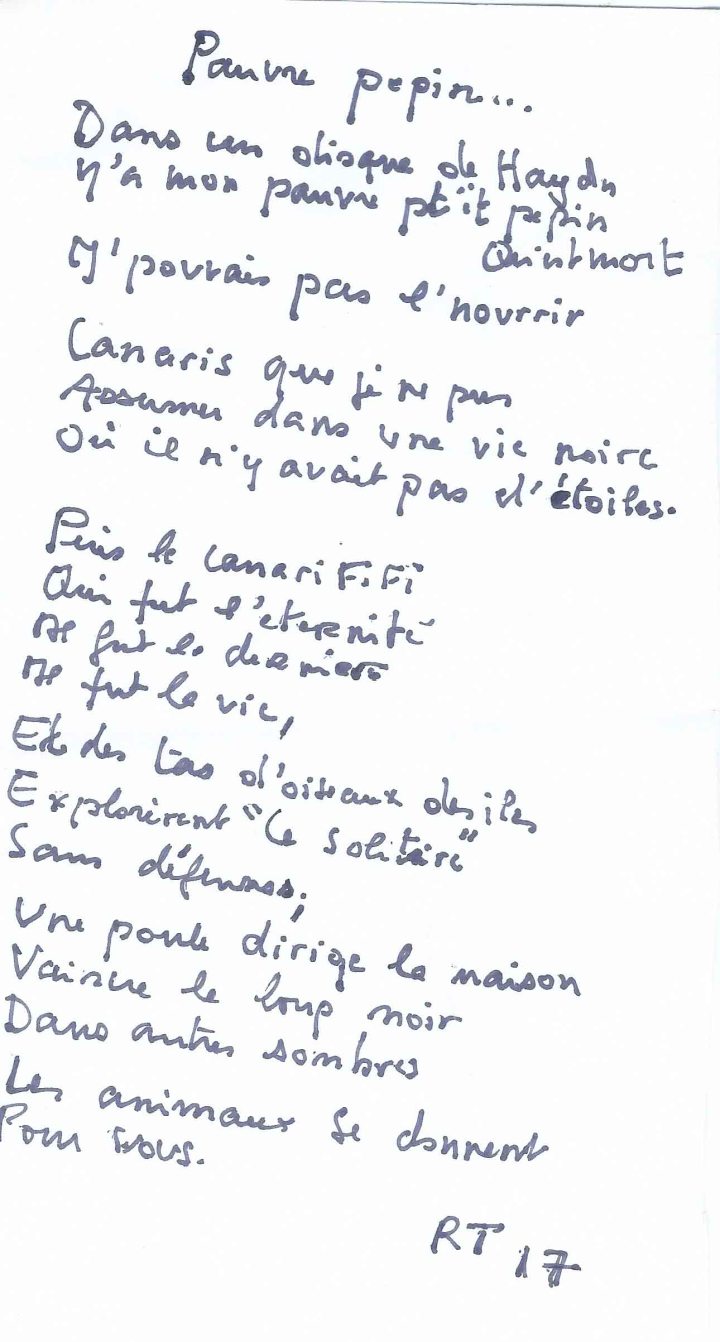 Pauvre pepin...
Dans un disque de Haydn
Y'a mon pauvre pt'it pepin
Qu'int mort
J'pouvais pas l'nourrir
Canaris que je ne pus
Assumer dans une vie noire
Où il n'y avait pas d'étoiles.
Puis le canari FiFi
Qui fut l'éternité
Il fut le dernier
Il fut la vie,
Et des tas d'oiseaux des iles
Explorèrent "Le solitaire"
Sans défenses;
Une poule dirige la maison
Vaincre le loup noir
Dans antres sombres
Les animaux se donnent
Pour vous.
RT 17